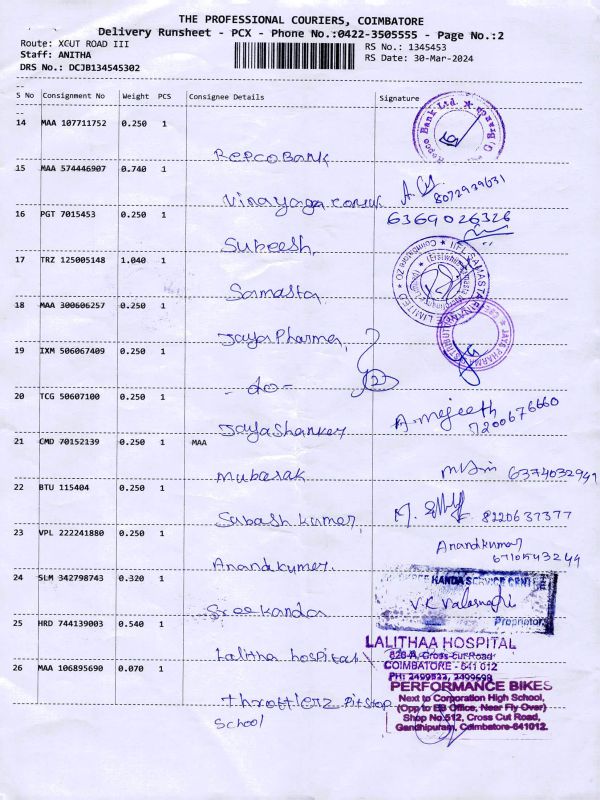 THE PROFESSIONAL COURIERS, COIMBATORE
Delivery Runsheet - PCX - Phone No.:0422-3505555 - Page No.:2
Route: XCUT ROAD III
RS No.: 1345453
Staff: ANITHA
RS Date: 30-Mar-2024
DRS No.: DCJB134545302
S No Consignment No Weight PCS Consignee Details Signature
14 MAA 107711752 0.250 1
Repco Bank
Repco Bank Ltd.
15 MAA 574446907 0.740 1
Vinayaga
8072939631
16 PGT 7015453 0.250 1
6369026326
Sureesh
17 TRZ 125005148 1.040 1
Samasta
IIFL SAMASTA FINANCE LIMITED
18 MAA 300606257 0.250 1
Jaya Pharma
19 IXM 506067409 0.250 1
- do -
20 TCG 50607100 0.250 1
Jaya Shanker
A. mejeeth
7200676660
21 CMD 70152139 0.250 1 MAA
Mubarak
6374032941
22 BTU 115404 0.250 1
Sabash kumar
8220637377
23 VPL 222241880 0.250 1
Anandkumar
Anandkumar
6710543244
24 SLM 342798743 0.320 1
Sreekanda
KANDA SERVICE CENTRE
Proprietor
25 HRD 744139003 0.540 1
Lalitha hospital
LALITHAA HOSPITAL
628-A, Cross Cut Road
COIMBATORE - 641 012
PH: 2499823, 2499698
26 MAA 106895690 0.070 1
Throttlerz Pitstop
School
PERFORMANCE BIKES
Next to Corporation High School,
(Opp to EB Office, Near Fly Over)
Shop No:512, Cross Cut Road,
Gandhipuram, Coimbatore-641012.